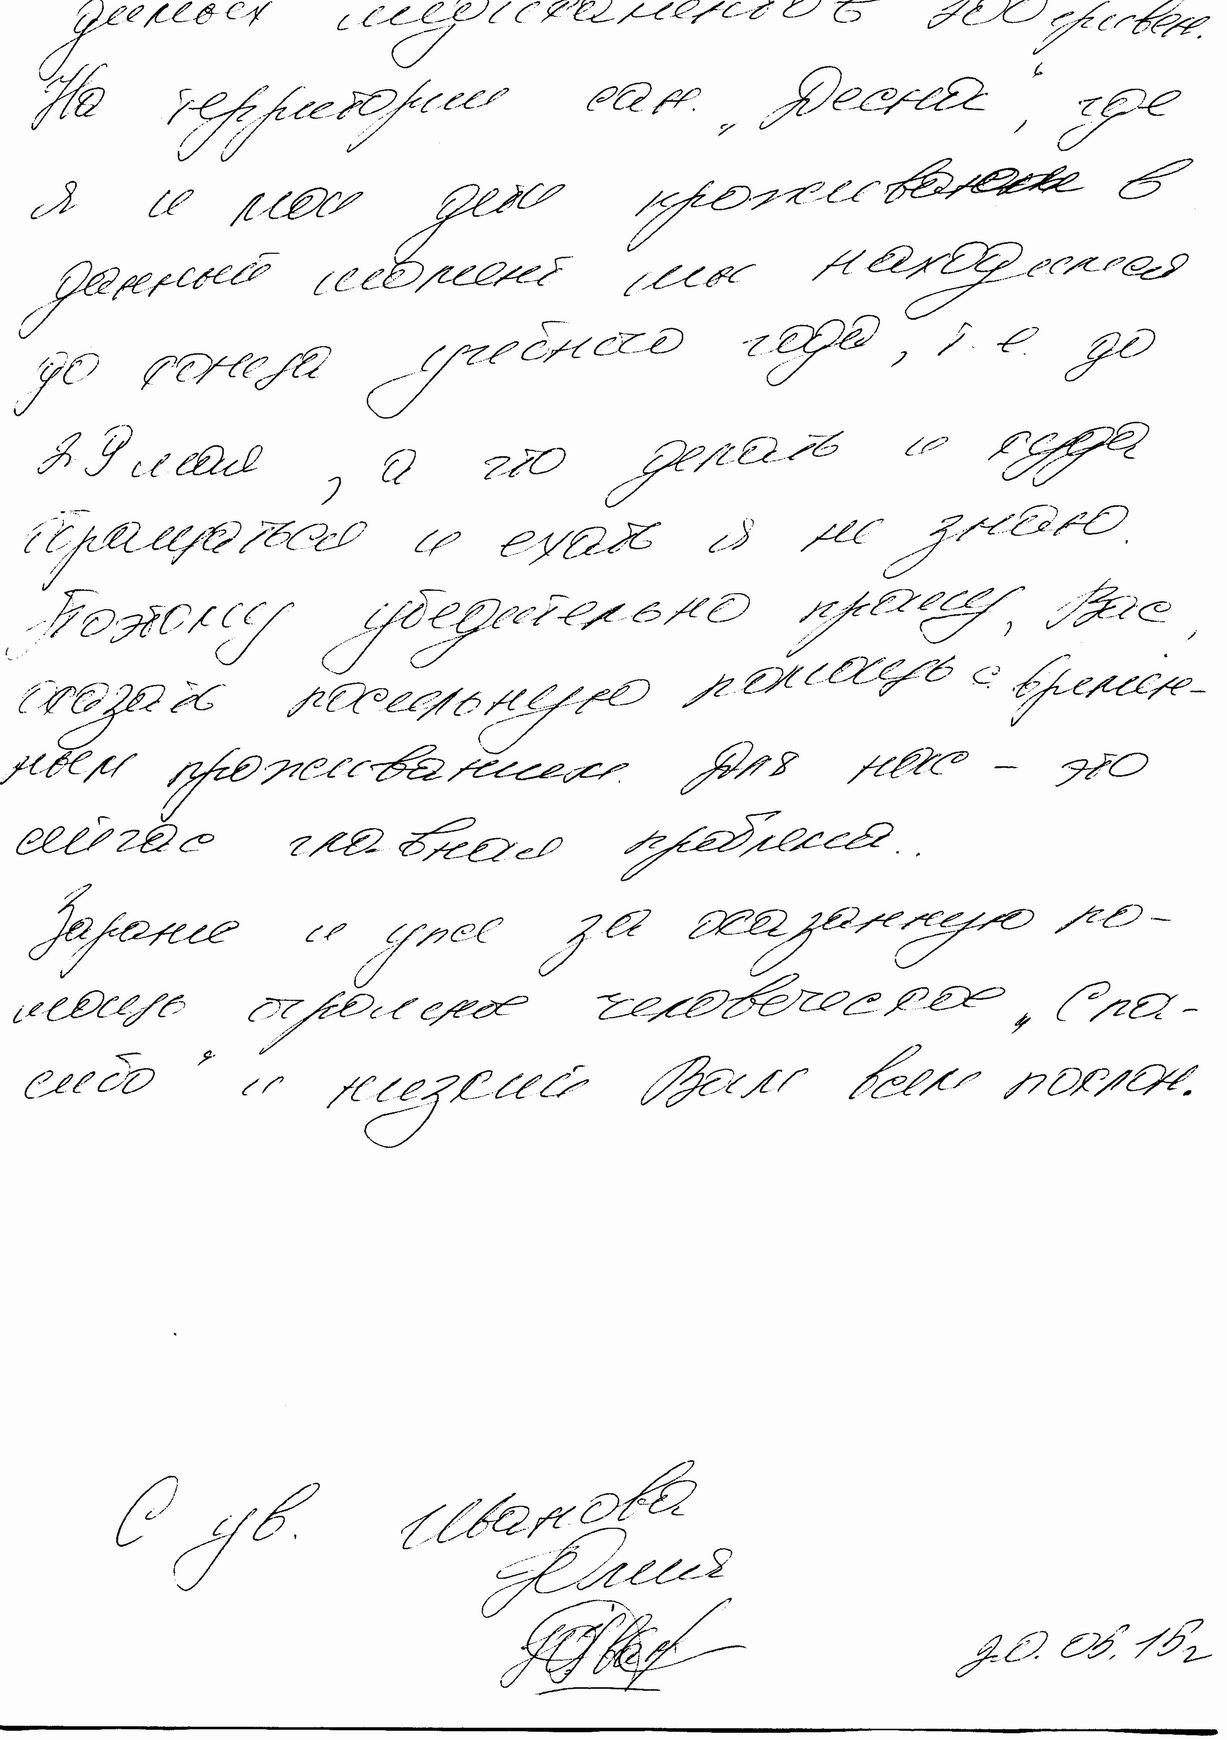 димых медикаментов 300 гривен.
На территории сан. „Десна“, где
я и мои дети проживаем в
данный момент мы находимся
до конца учебного года, т.е. до
29 мая, а что делать и куда
обращаться и ехать я не знаю.
Поэтому убедительно прошу, Вас,
оказать посильную помощь с времен-
ным проживанием. Для нас – это
сейчас главная проблема..
Зарание и уже за оказанную по-
мощь огромное человеческое „Спа-
сибо“ и низкий Вам всем поклон.
С ув. Иванова
Юлия
20.05.15г